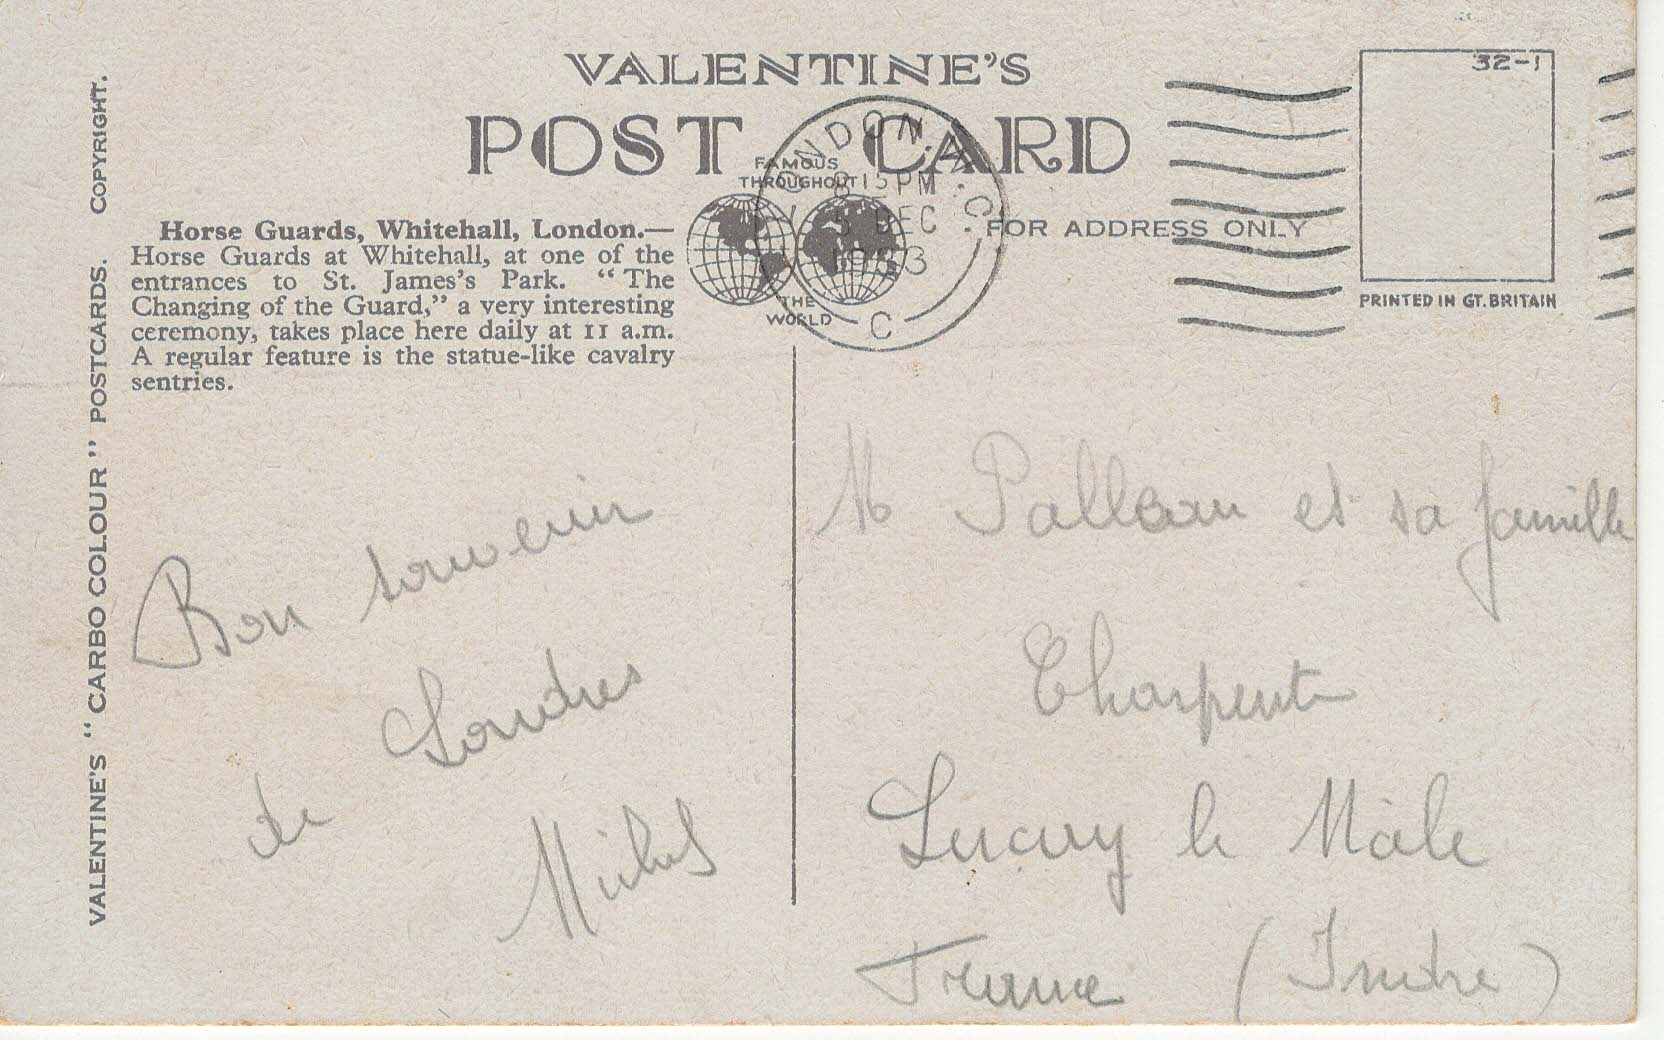 VALENTINE'S
POST CARD
FAMOUS
THROUGHOUT
THE
WORLD
FOR ADDRESS ONLY
32-1
PRINTED IN GT. BRITAIN
LONDON. W.C.
8 15 PM
5 DEC
1933
C
VALENTINE'S "CARBO COLOUR" POSTCARDS. COPYRIGHT.
Horse Guards, Whitehall, London.—
Horse Guards at Whitehall, at one of the
entrances to St. James's Park. "The
Changing of the Guard," a very interesting
ceremony, takes place here daily at 11 a.m.
A regular feature is the statue-like cavalry
sentries.
Bon souvenir
de Londres
Michel
M Palleau et sa famille
Charpente
Luçay le Mâle
France (Indre)